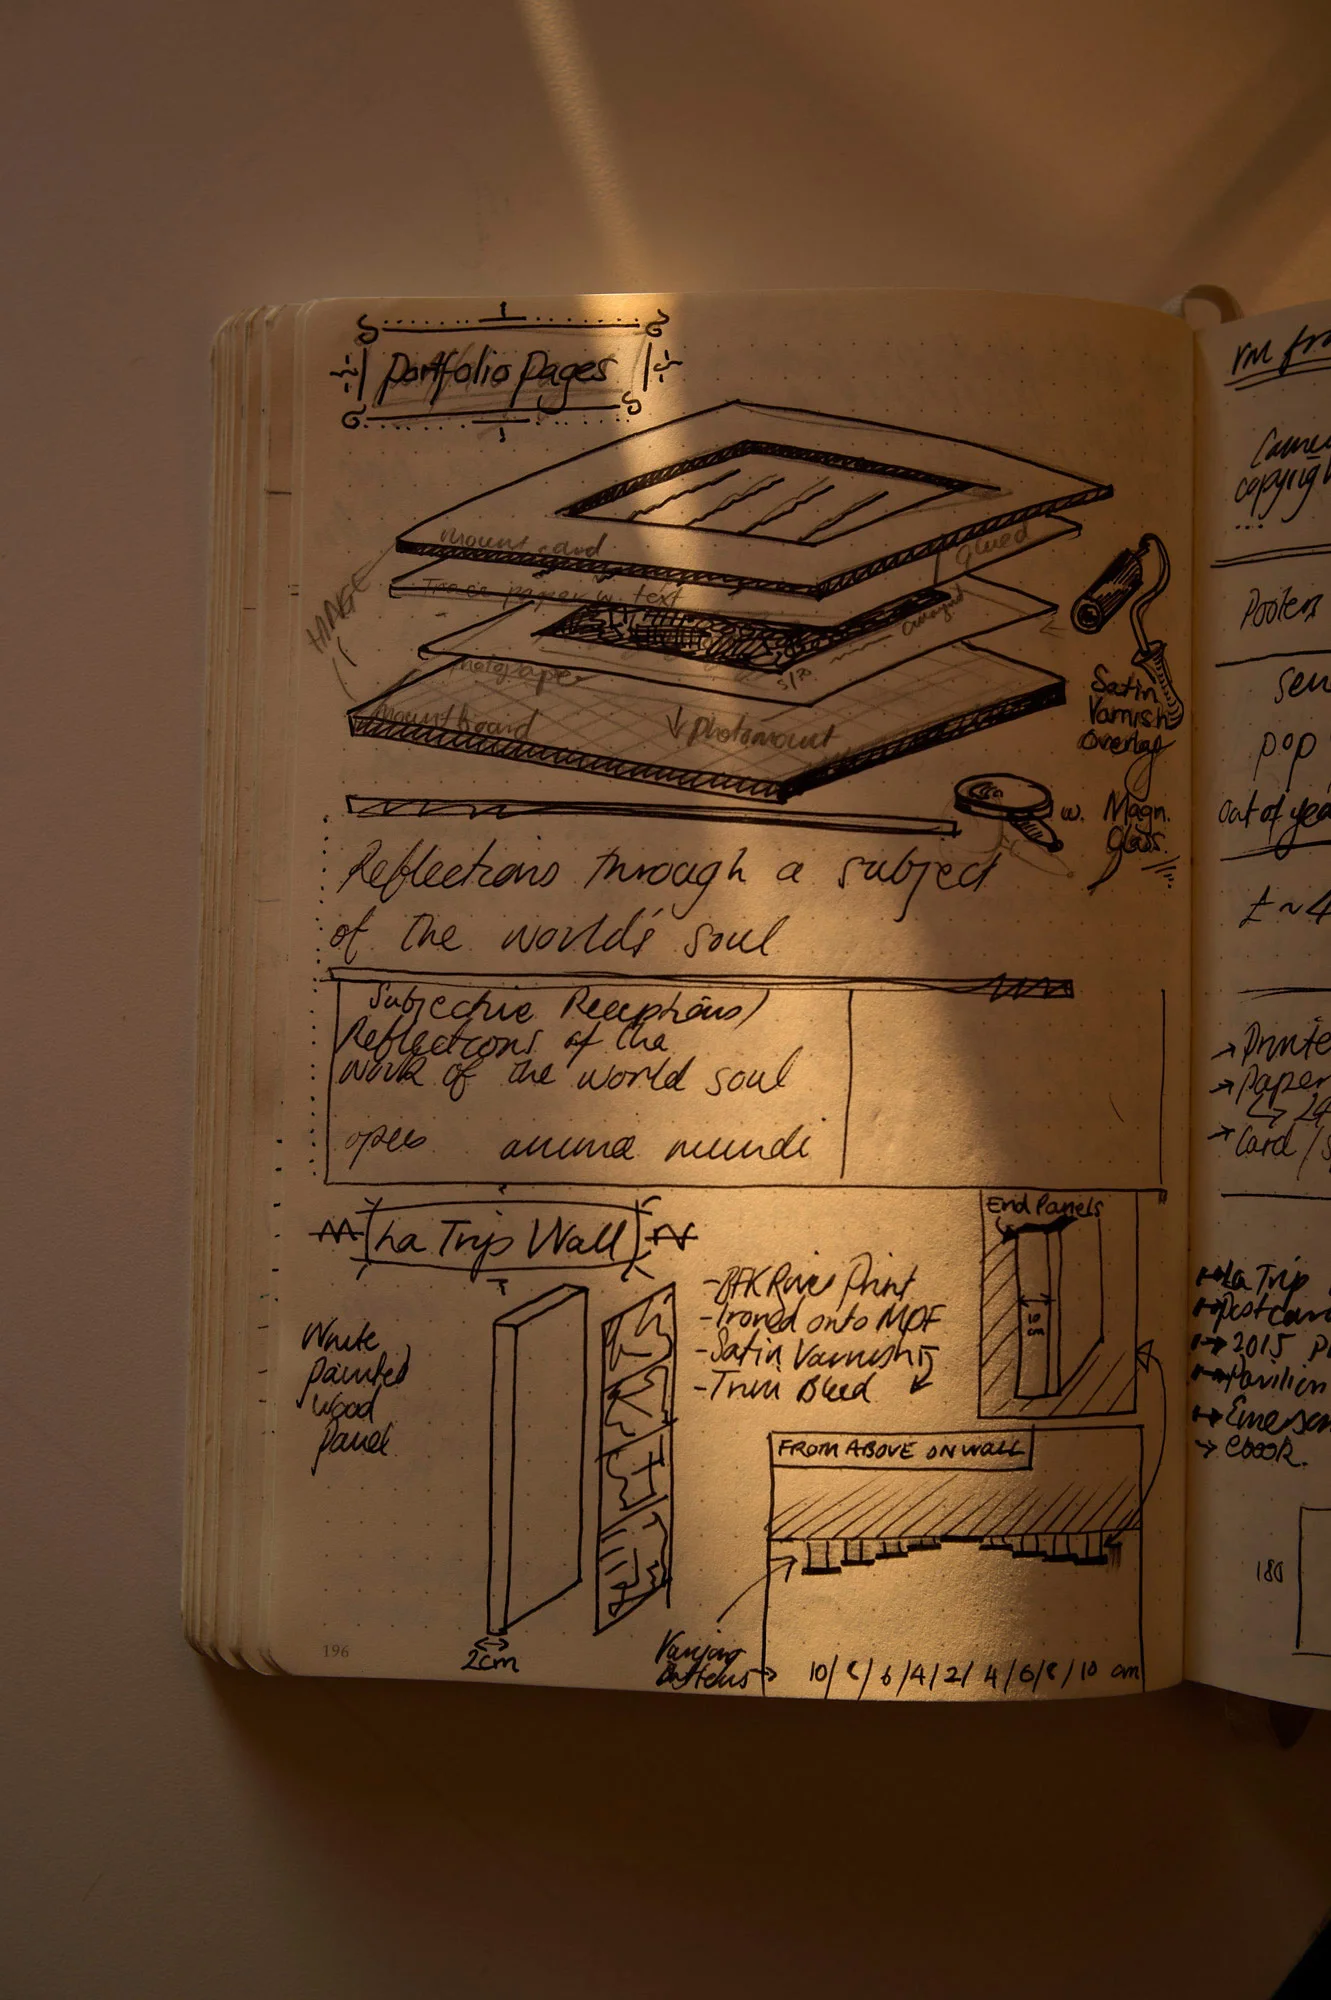 Portfolio Pages
mount card
glued
Trace paper w. text
HINGE
photopaper
mountboard
photomount
Satin
Varnish
Overlay
w. Magn.
Glass
Reflections through a subject
of the world's soul
Subjective Receptions/
Reflections of the
work of the world soul
opus anima mundi
La Trip Wall
White
Painted
Wood
Panel
2cm
-BFK Rives Print
-Ironed onto MDF
-Satin Varnish
-Trim Bleed
End Panels
10
cm
FROM ABOVE ON WALL
Varying
Battens
10/8/6/4/2/4/6/8/10 cm
196
copyrigh
Posters
pop
out of yea
£~4
Printe
Paper
24
Card/S
La Trip
Postcar
2015 P
Pavilion
Emerson
ebook.
180